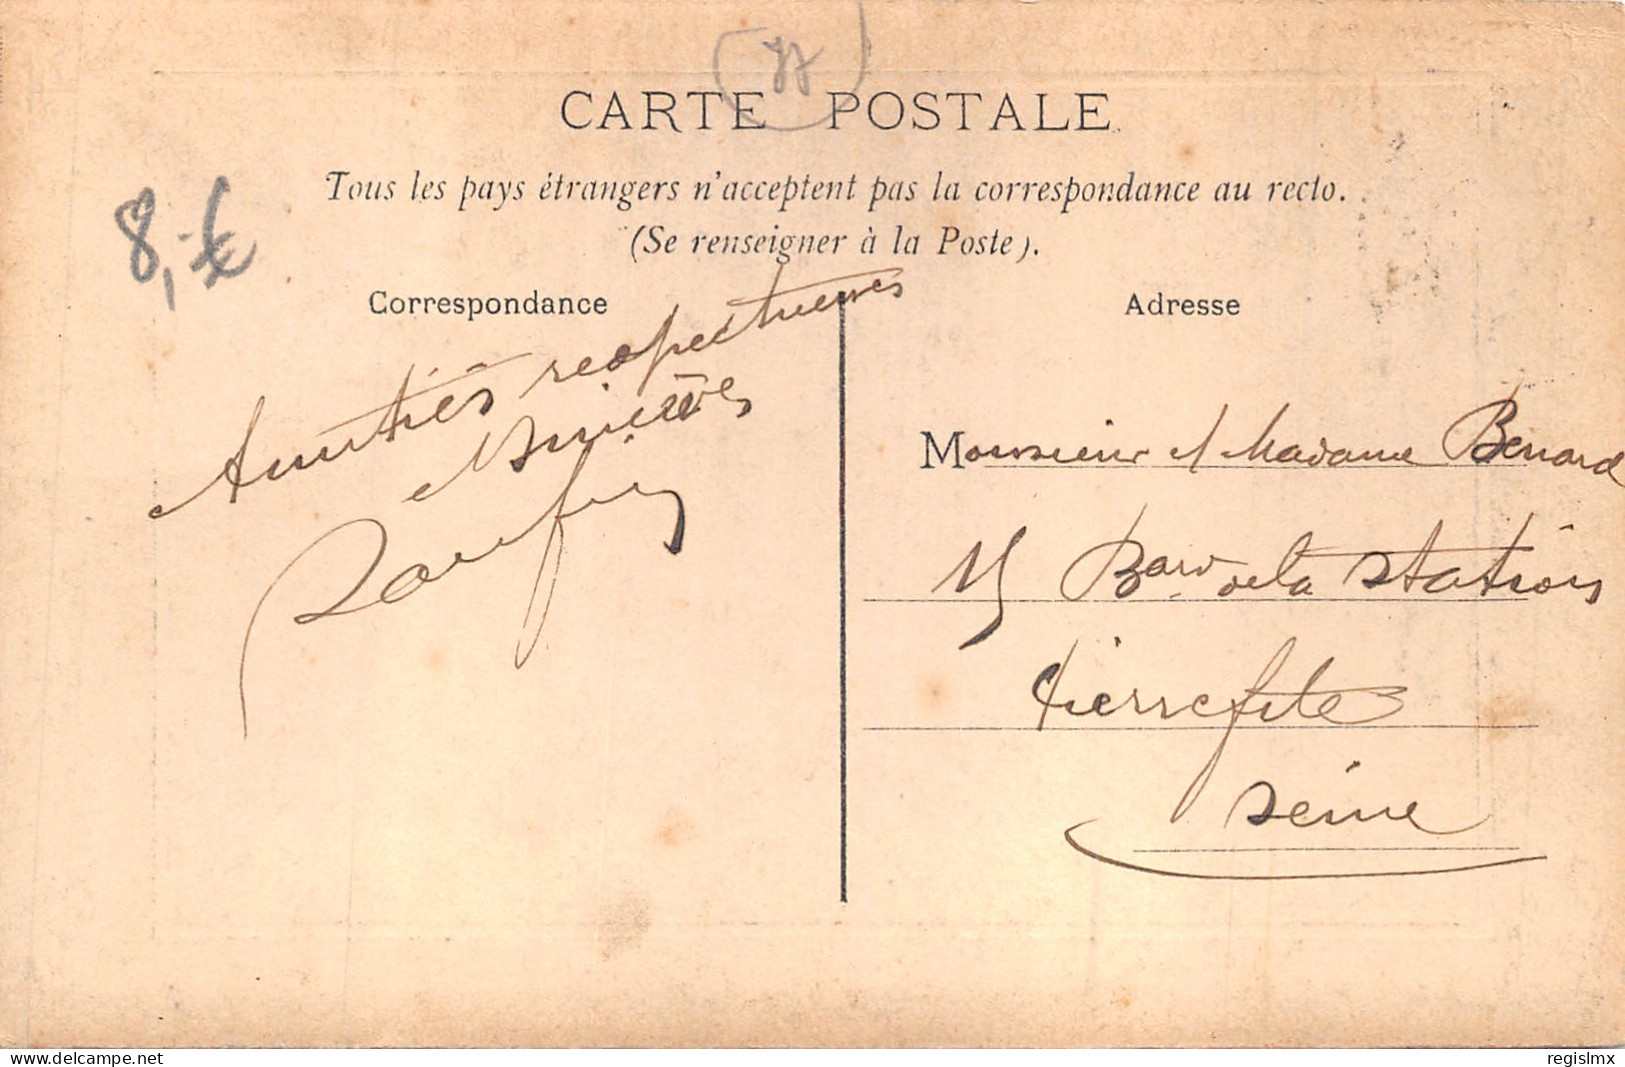 (77)
CARTE POSTALE
Tous les pays étrangers n'acceptent pas la correspondance au recto.
(Se renseigner à la Poste).
8,-€
Correspondance
Amitiés respectueuses
et sincères
Adresse
Monsieur et Madame Benard
15 Bard de la Station
Pierrefite
Seine
www.delcampe.net
regislmx